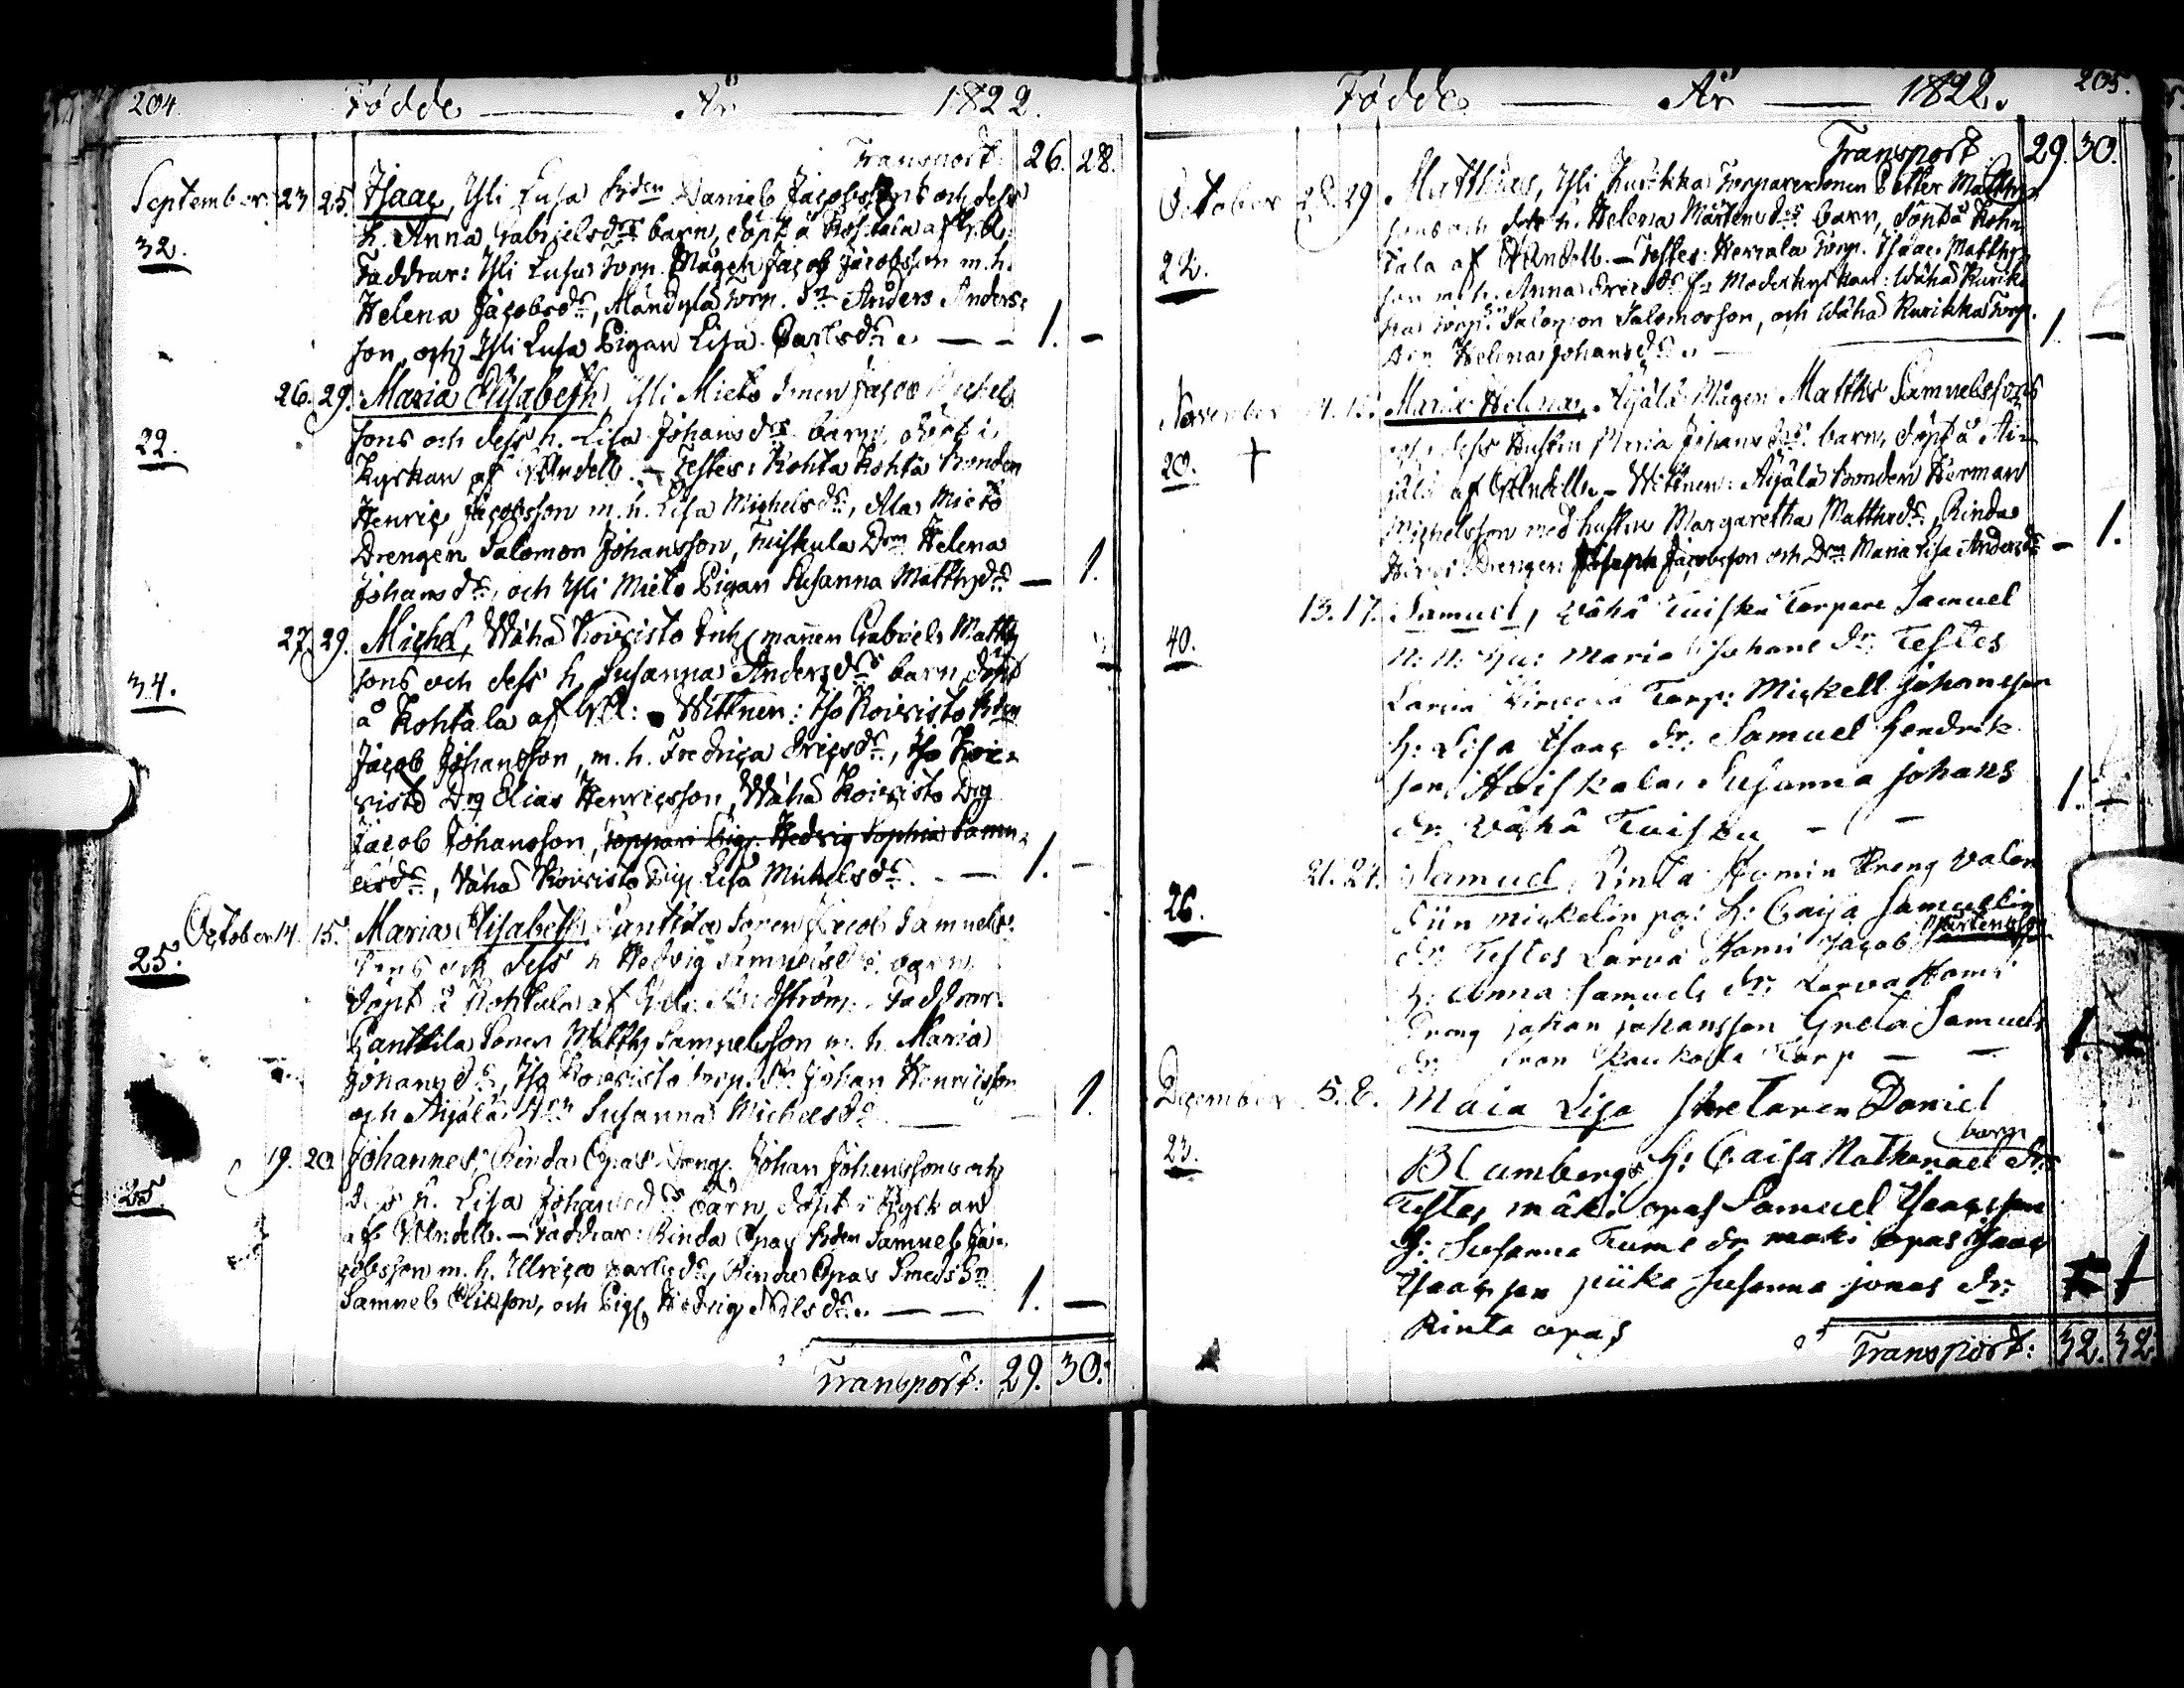 204. Födde År 1822.
Transport: 26. 28.
September 23 25. Isaac, Yli Lusa Bden Daniel Jacobssons och dess
h. Anna Gabrielsdrs barn, döpt å Kohtala af V.A.
32.
Faddrar: Yli Lusa Torp. Mågen Jacob Jacobsson m. h.
Helena Jacobsdr, Mändylä Torp. Sn Anders Anders-
son, och Yli Lusa Pigan Lisa Carlsdr. — — 1. —
26. 29. Maria Elisabeth, Yli Mieto Sonen Jacob Michels
sons och dess h. Lisa Johansdrs barn, döpt i
22.
Kyrkan af Vr Indell. — Testes: Kohta Kohta Bonden
Henric Jacobsson m. h. Lisa Michelsdr, Ala Mieto
Drengen Salomon Johansson, Tuiskula Drn Helena
Johansdr, och Yli Mieto Pigan Susanna Matthsdr — 1.
27. 29. Michel, Wähä Koivisto Inhysmannen Gabriel Matth
sons och dess h. Susanna Andersdrs barn, döpt
34.
å Kohtala af V.A: Wittnen: Iso Koivisto Bden
Jacob Johansson, m. h. Fredrica Ericsdr, Iso Koi-
visto Drg Elias Henricsson, Wähä Koivisto Drg
Jacob Johansson, Toppari Pig. Hedvig Sophia Samu-
elsdr, Wähä Koivisto Pig. Lisa Michelsdr. — — 1. —
October 14. 15. Maria Elisabeth, Panttila Sonen Jacob Samuels-
25.
sons och dess h. Hedvig Samuelsdrs barn,
döpt å Kohtala af Faddrar:
Panttila Sonen Matths Samuelsson m. h. Maria
Johansdr, Iso Koivisto Torp. Sn Johan Henricsson
och Äijälä Susanna Michelsdr — 1.
19. 20. Johannes, Rinda Opas Dreng. Johan Johanssons och
25
dess h. Lisa Johansdrs barn, döpt i Kyrkan
af Vr Indell. — Faddrar: Rinda Opas Bden Samuel Ja-
cobsson m. h. Ulrica Carlsdr, Rinda Opas Smeds Sn
Samuel Elisson, och Pig. Hedvig Nilsdr. — — 1. —
Transport: 29. 30.
Födde — År — 1822. 205.
Transport 29. 30.
October 28. 29 Matthias, Yli Kurikka Torparesonen Petter Matths
sons och dess h. Helena Mårtensdrs barn, döpt å Koh-
22.
tala af Vr Indell. — Testes: Herrala Torp. Isaac Matths
son m. h. Anna Ericsdr Wähä Kurik
ka Torp. Sn Salomon Salomosson, och Wähä Kurikka Torp.
Drn Helena Johansdr. — 1. —
November 14. 15. Maria Helena, Äijälä Mågen Matths Samuelssons
och dess hustru Maria Johansdrs barn, döpt å Äi-
20. +
jälä af Vr Indell. — Wittnen: Äijälä Bonden Herman
Michelsson med hustru Margaretha Matthsdr, Rinda
Drengen Joseph Jacobsson och Drn Maria Lisa Andersdr — 1.
13. 17. Samuel, Wähä Tuisku Torpare Samuel
40.
N: N: Hu: Maria Johans dr: Testes
Larva Torp: Mickell Johansson
h: Lisa Isaac dr: Samuel Hendrik
son Huiskala, Susanna Johans
dr: Wähä Tuisku — — 1. —
21. 24. Samuel, Rinta Homin Dreng Valen
26.
tiin Mickelin po: h: Caisa Samuelin
dr: Testes Larva Homi Jacob Mårtensson
h: Anna Samuels dr: Larva Homi
Dreng Johan Johansson Greta Samuels
dr: Torp — — 1. —
December 5. 8. Maia Lisa Daniel
23.
Blumbergs h: Caisa Nathanael dr: barn
Testes Mäki opas Samuel Isacsson
h: Susanna dr Mäki opas Isaac
Isaacson piika Susanna Jonas dr:
Rinta opas 1
Transport: 32. 32